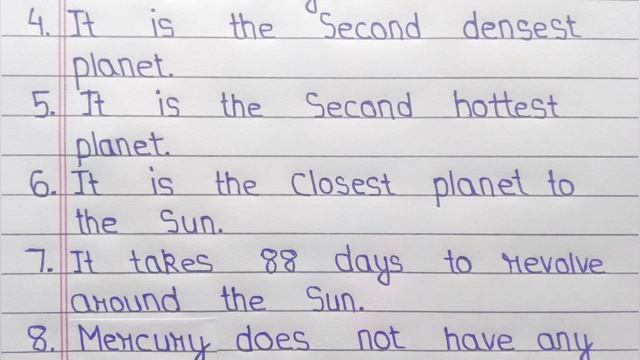 4. It is the Second densest
planet.
5. It is the Second hottest
planet.
6. It is the Closest planet to
the Sun.
7. It takes 88 days to revolve
around the Sun.
8. Mercury does not have any